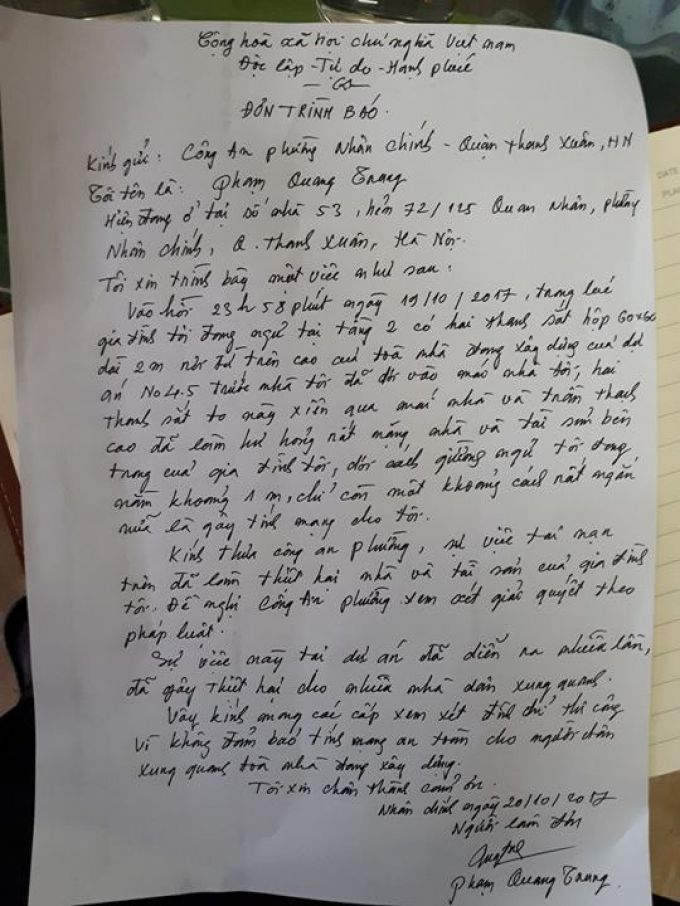 Cộng hoà xã hội chủ nghĩa Việt nam
Độc lập - Tự do - Hạnh phúc
ĐƠN TRÌNH BÁO.
Kính gửi: Công An phường Nhân chính - Quận Thanh Xuân, HN
Tôi tên là: Phạm Quang Trung
Hiện đang ở tại số nhà 53, hẻm 72/125 Quan Nhân, phường
Nhân chính, Q. Thanh Xuân, Hà Nội.
Tôi xin trình bày một việc như sau:
Vào hồi 23h 58 phút ngày 19/10/2017, trong lúc
gia đình tôi đang ngủ tại tầng 2 có hai thanh sắt hộp 60x60
dài 2m rơi từ trên cao của toà nhà đang xây dựng của dự
án No4.5 trước nhà tôi đã rơi vào mái nhà tôi, hai
thanh sắt to này xiên qua mái nhà và trần thạch
cao đã làm hư hỏng rất nặng nhà và tài sản bên
trong của gia đình tôi, rơi cách giường ngủ tôi đang
nằm khoảng 1m, chỉ còn một khoảng cách rất ngắn
nữa là gây tính mạng cho tôi.
Kính thưa công an phường, sự việc tai nạn
trên đã làm thiệt hại nhà và tài sản của gia đình
tôi. Đề nghị Công An phường xem xét giải quyết theo
pháp luật.
Sự việc này tại dự án đã diễn ra nhiều lần,
đã gây thiệt hại cho nhiều nhà dân xung quanh.
Vậy kính mong các cấp xem xét đình chỉ thi công
vì không đảm bảo tính mạng an toàn cho người dân
xung quanh toà nhà đang xây dựng.
Tôi xin chân thành cảm ơn.
Nhân chính ngày 20/10/2017
Người làm đơn
Phạm Quang Trung
DATE